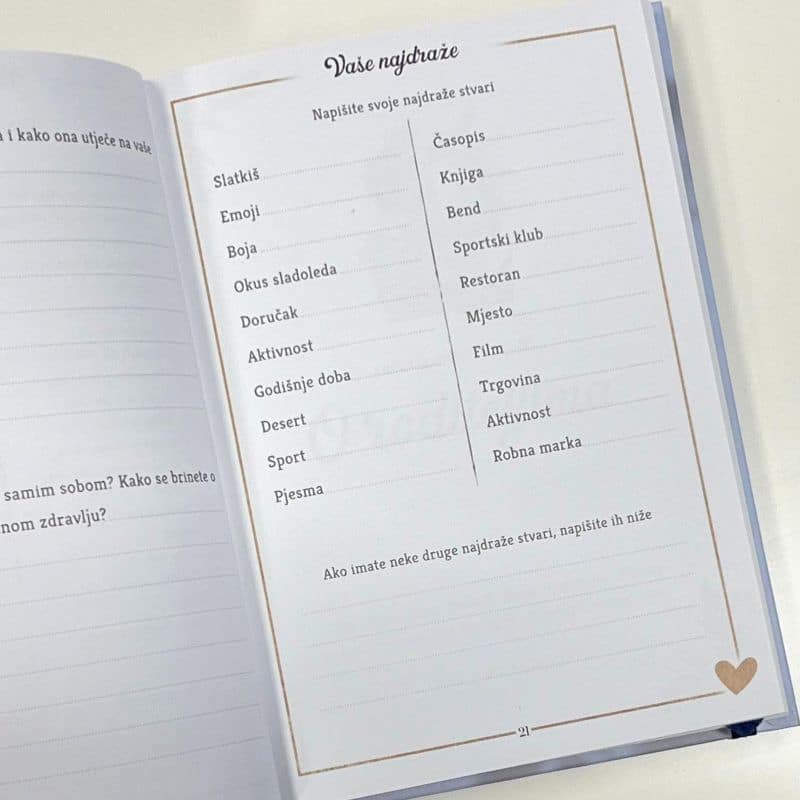 i kako ona utječe na vaše
samim sobom? Kako se brinete o
nom zdravlju?
Vaše najdraže
Napišite svoje najdraže stvari
Slatkiš
Emoji
Boja
Okus sladoleda
Doručak
Aktivnost
Godišnje doba
Desert
Sport
Pjesma
Časopis
Knjiga
Bend
Sportski klub
Restoran
Mjesto
Film
Trgovina
Aktivnost
Robna marka
Ako imate neke druge najdraže stvari, napišite ih niže
21